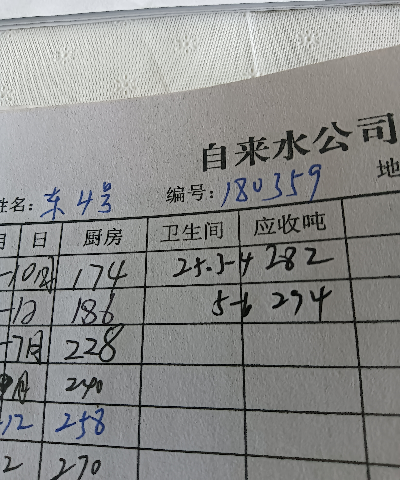 自来水公司
姓名: 东4号 编号: 180359 地
月 日 厨房 卫生间 应收吨
-10月 174 25.3-4 282
-12 186 5-6 294
-7月 228
月 240
12 258
2 270